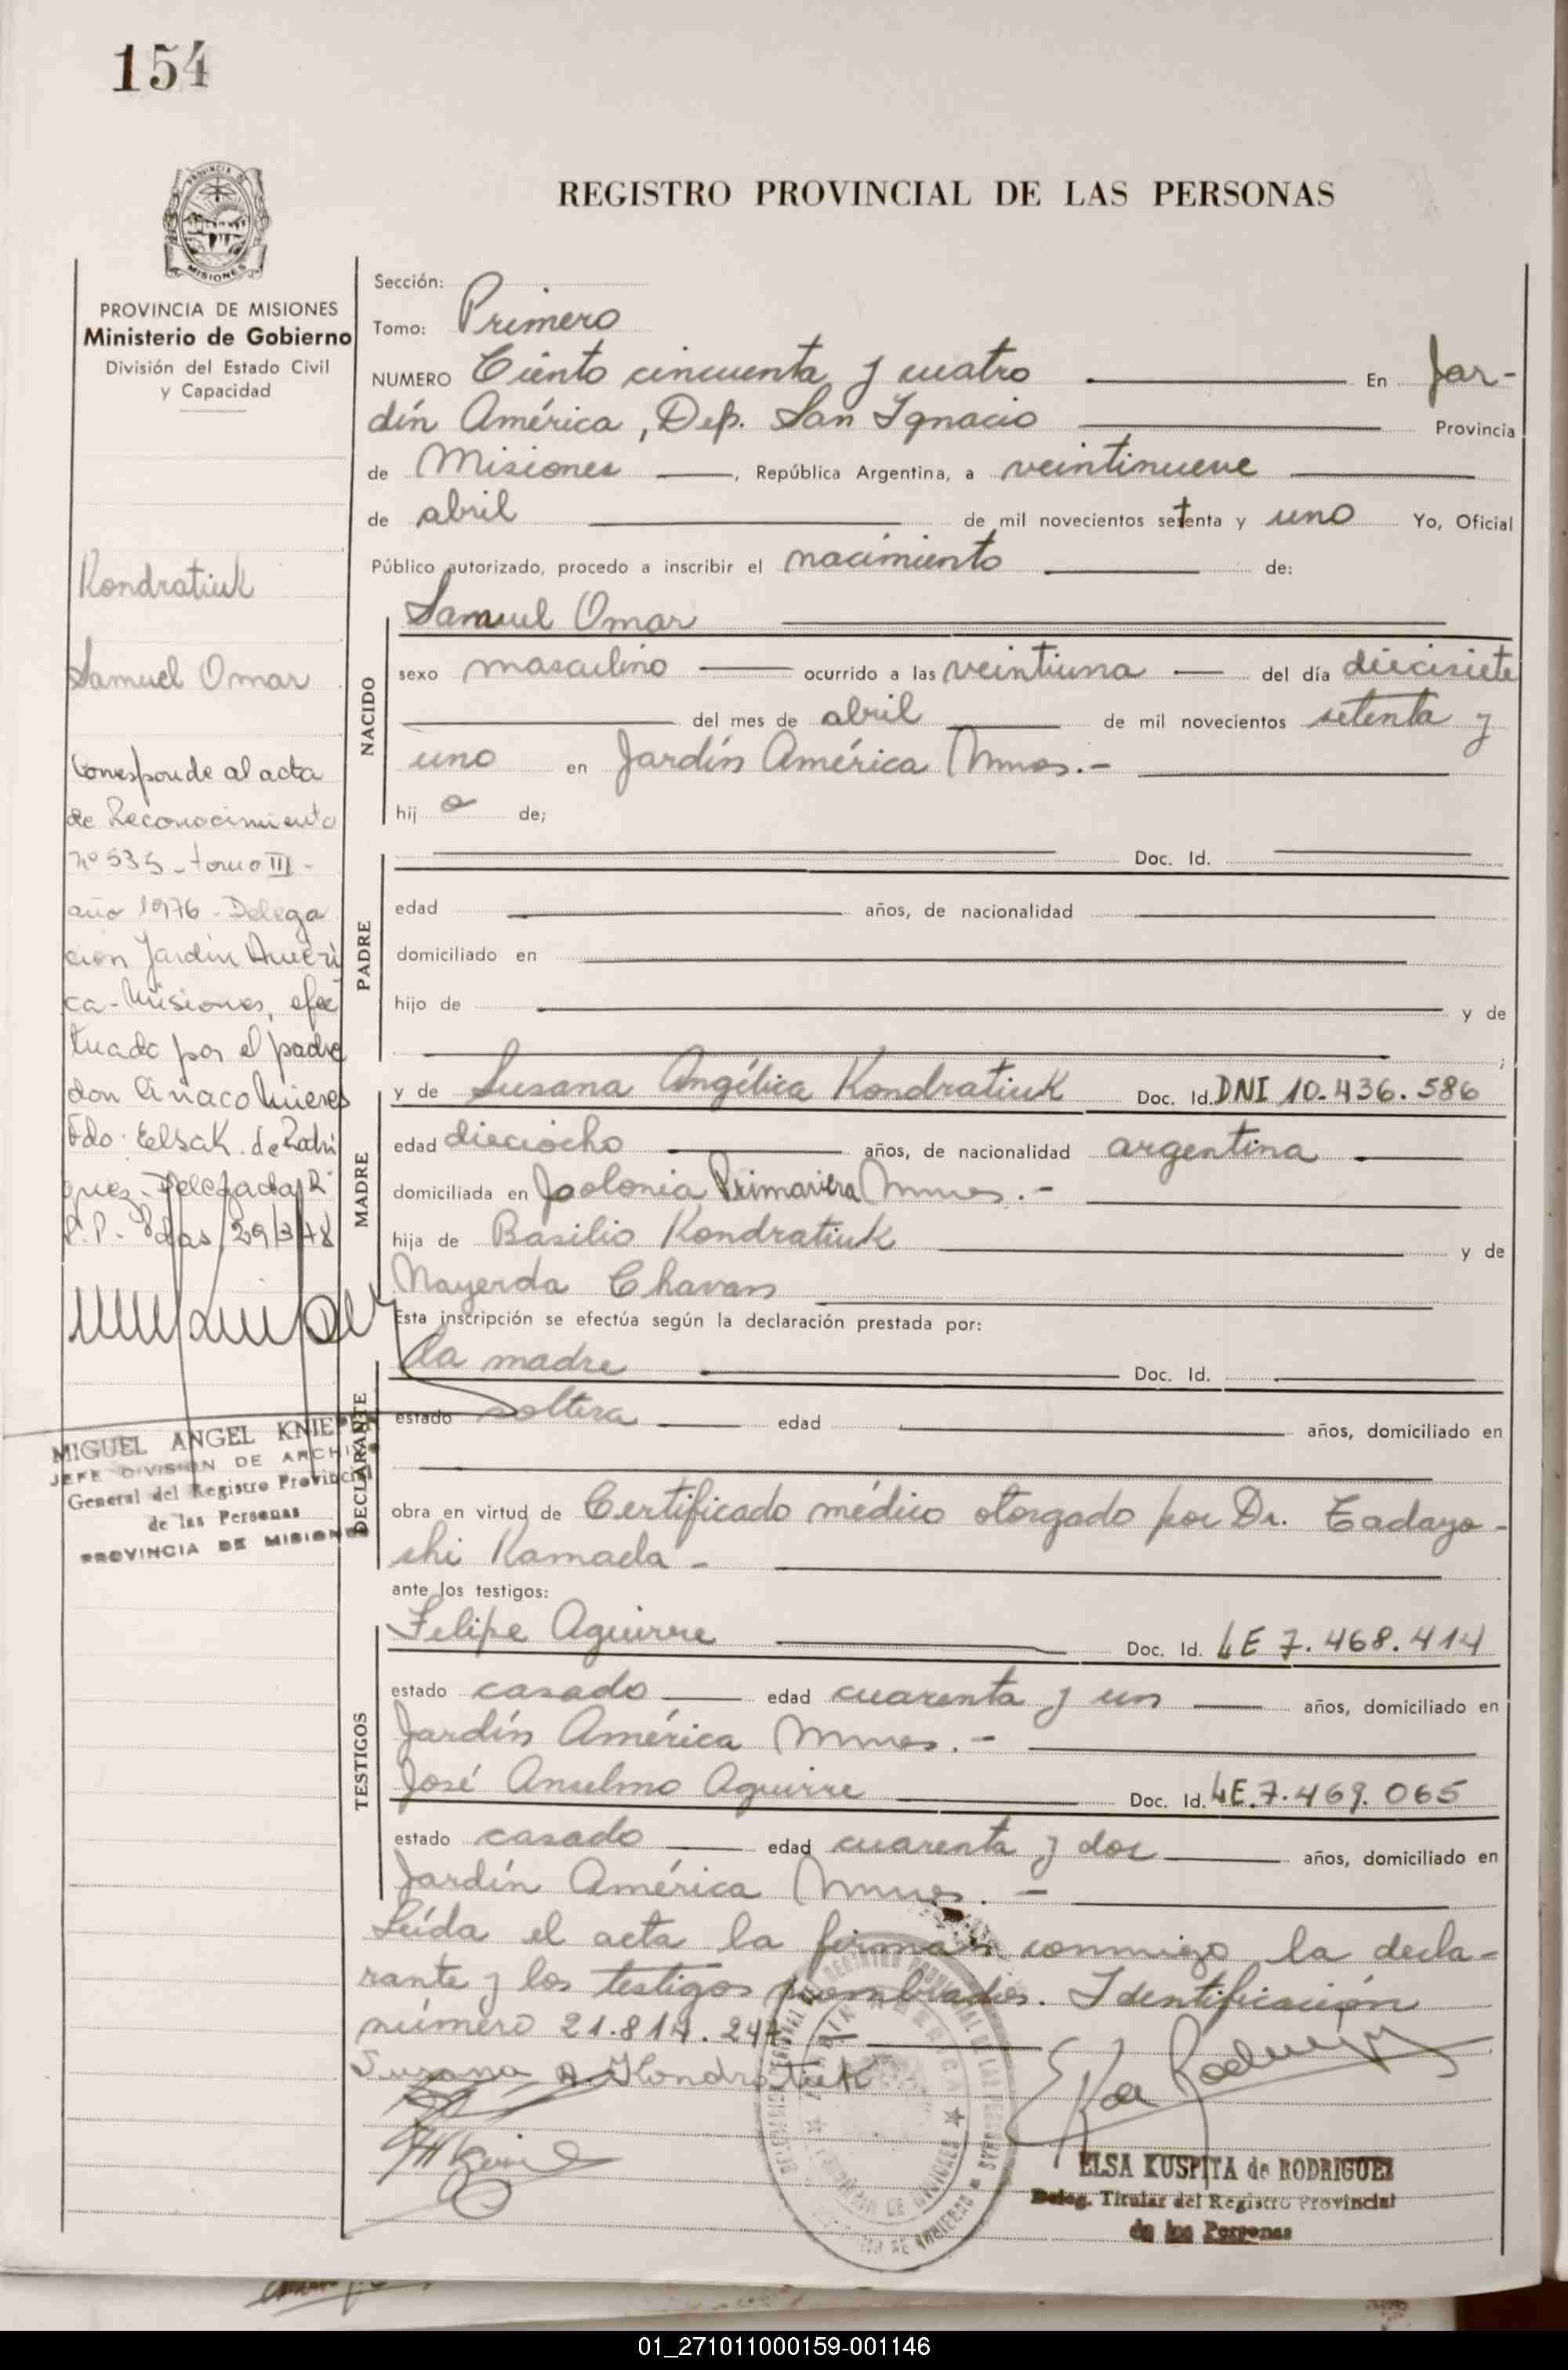 154
PROVINCIA DE MISIONES
Ministerio de Gobierno
División del Estado Civil
y Capacidad
Kondratiuk
Samuel Omar
Corresponde al acta
de Reconocimiento
nº 535 - tomo III -
año 1976 - Delega
cion Jardin Améri
ca - Misiones, efec
tuado por el padre
don
Fdo. Elsa K. de Rodri
guez - Delegada R.
P.P. - Pdas, 29/3/78
MIGUEL ANGEL KNIE
JEFE DIVISION DE ARCHIVO
General del Registro Provincial
de las Personas
PROVINCIA DE MISIONES
REGISTRO PROVINCIAL DE LAS PERSONAS
Sección:
Tomo: Primero
NUMERO Ciento cincuenta y cuatro En Jar-
dín América, Dep. San Ignacio Provincia
de Misiones, República Argentina, a veintinueve
de abril de mil novecientos setenta y uno Yo, Oficial
Público autorizado, procedo a inscribir el nacimiento de:
NACIDO
Samuel Omar
sexo masculino ocurrido a las veintiuna del día diecisiete
del mes de abril de mil novecientos setenta y
uno en Jardín América Mnes.-
hij o de;
PADRE
Doc. Id.
edad años, de nacionalidad
domiciliado en
hijo de y de
;
MADRE
y de Susana Angélica Kondratiuk Doc. Id. DNI 10.436.586
edad dieciocho años, de nacionalidad argentina
domiciliada en Colonia Primavera Mnes.-
hija de Basilio Kondratiuk y de
Nayerda Chavan
Esta inscripción se efectúa según la declaración prestada por:
DECLARANTE
la madre Doc. Id.
estado soltera edad años, domiciliado en
obra en virtud de Certificado médico otorgado por Dr. Tadayo-
shi Kamada -
ante los testigos:
TESTIGOS
Felipe Aguirre Doc. Id. LE 7.468.414
estado casado edad cuarenta y un años, domiciliado en
Jardín América Mnes.-
José Anselmo Aguirre Doc. Id. LE.7.469.065
estado casado edad cuarenta y dos años, domiciliado en
Jardín América Mnes.-
Leída el acta la firman conmigo la decla-
rante y los testigos nombrados. Identificación
número 21.814.247
Susana A. Kondratiuk
ELSA KUSPITA de RODRIGUEZ
Deleg. Titular del Registro Provincial
de las Personas
01_271011000159-001146